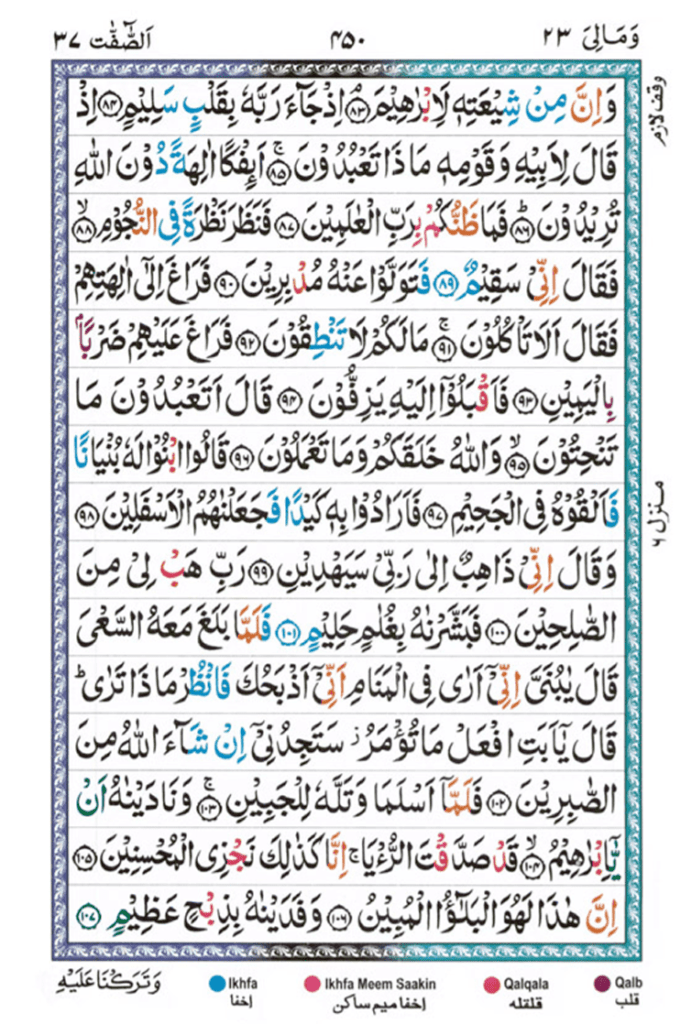 وَمَالِیَ ٢٣
٤٥٠
اَلصّٰٓفّٰت ٣٧
وقف لازم
وَاِنَّ مِنۡ شِيۡعَتِهٖ لَاِبۡرٰهِيۡمَ‌ۘ ﴿۸۳﴾ اِذۡ جَآءَ رَبَّهٗ بِقَلۡبٍ سَلِيۡمٍ ﴿۸۴﴾ اِذۡ
قَالَ لِاَبِيۡهِ وَقَوۡمِهٖ مَاذَا تَعۡبُدُوۡنَ‌ۚ ﴿۸۵﴾ اَٮِٕفۡكًا اٰلِهَةً دُوۡنَ اللّٰهِ
تُرِيۡدُوۡنَؕ ﴿۸۶﴾ فَمَا ظَنُّكُمۡ بِرَبِّ الۡعٰلَمِيۡنَ ﴿۸۷﴾ فَنَظَرَ نَظۡرَةً فِى النُّجُوۡمِۙ ﴿۸۸﴾
فَقَالَ اِنِّىۡ سَقِيۡمٌ ﴿۸۹﴾ فَتَوَلَّوۡا عَنۡهُ مُدۡبِرِيۡنَ ﴿۹۰﴾ فَرَاغَ اِلٰٓى اٰلِهَتِهِمۡ
فَقَالَ اَلَا تَاۡكُلُوۡنَ‌ۚ ﴿۹۱﴾ مَا لَكُمۡ لَا تَنۡطِقُوۡنَ ﴿۹۲﴾ فَرَاغَ عَلَيۡهِمۡ ضَرۡبًاۢ
بِالۡيَمِيۡنِ ﴿۹۳﴾ فَاَقۡبَلُوۡۤا اِلَيۡهِ يَزِفُّوۡنَ ﴿۹۴﴾ قَالَ اَتَعۡبُدُوۡنَ مَا
تَنۡحِتُوۡنَۙ ﴿۹۵﴾ وَاللّٰهُ خَلَقَكُمۡ وَمَا تَعۡمَلُوۡنَ ﴿۹۶﴾ قَالُوا ابۡنُوۡا لَهٗ بُنۡيَانًا
فَاَلۡقُوۡهُ فِى الۡجَحِيۡمِ ﴿۹۷﴾ فَاَرَادُوۡا بِهٖ كَيۡدًا فَجَعَلۡنٰهُمُ الۡاَسۡفَلِيۡنَ ﴿۹۸﴾
منزل ٦
وَقَالَ اِنِّىۡ ذَاهِبٌ اِلٰى رَبِّىۡ سَيَهۡدِيۡنِ ﴿۹۹﴾ رَبِّ هَبۡ لِىۡ مِنَ
الصّٰلِحِيۡنَ ﴿۱۰۰﴾ فَبَشَّرۡنٰهُ بِغُلٰمٍ حَلِيۡمٍ ﴿۱۰۱﴾ فَلَمَّا بَلَغَ مَعَهُ السَّعۡىَ
قَالَ يٰبُنَىَّ اِنِّىۡۤ اَرٰى فِى الۡمَنَامِ اَنِّىۡۤ اَذۡبَحُكَ فَانْظُرۡ مَاذَا تَرٰىؕ
قَالَ يٰۤاَبَتِ افۡعَلۡ مَا تُؤۡمَرُ سَتَجِدُنِىۡۤ اِنۡ شَآءَ اللّٰهُ مِنَ
الصّٰبِرِيۡنَ ﴿۱۰۲﴾ فَلَمَّاۤ اَسۡلَمَا وَتَلَّهٗ لِلۡجَبِيۡنِ‌ۚ ﴿۱۰۳﴾ وَنَادَيۡنٰهُ اَنۡ
يّٰۤاِبۡرٰهِيۡمُۙ ﴿۱۰۴﴾ قَدۡ صَدَّقۡتَ الرُّءۡيَا‌ۚ اِنَّا كَذٰلِكَ نَجۡزِى الۡمُحۡسِنِيۡنَ ﴿۱۰۵﴾
اِنَّ هٰذَا لَهُوَ الۡبَلٰٓؤُا الۡمُبِيۡنُ ﴿۱۰۶﴾ وَفَدَيۡنٰهُ بِذِبۡحٍ عَظِيۡمٍ ﴿۱۰۷﴾
وَتَرَكۡنَا عَلَيۡهِ
Ikhfa Ikhfa Meem Saakin Qalqala Qalb
إخفا إخفا میم ساکن قلقله قلب